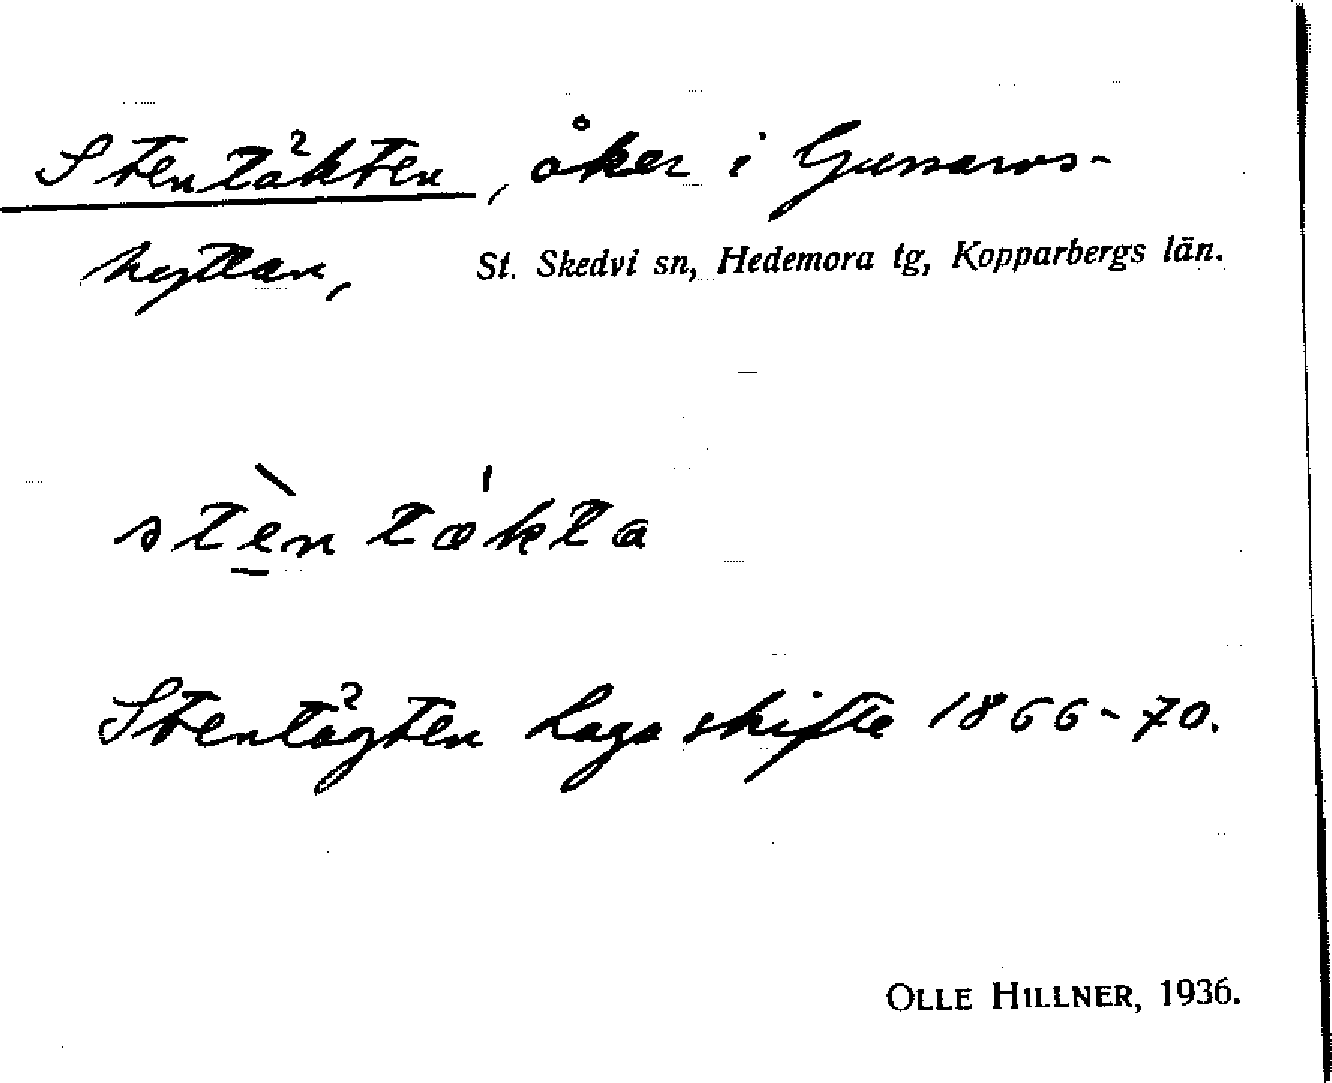 Stentäkten, åker i Gussarvs-
hyttan, St. Skedvi sn, Hedemora tg, Kopparbergs län.
stèn tækta
Stentägten Laga skifte 1866-70.
OLLE HILLNER, 1936.